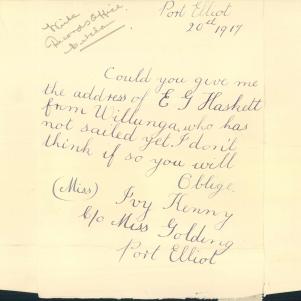 Port Elliot
20th 1917
Records Office
Could you give me
the address of E G Haskett
from Willunga, who has
not sailed yet, I don't
think if so you will
Oblige.
(Miss) Ivy Kenny
C/o Miss Golding
Port Elliot